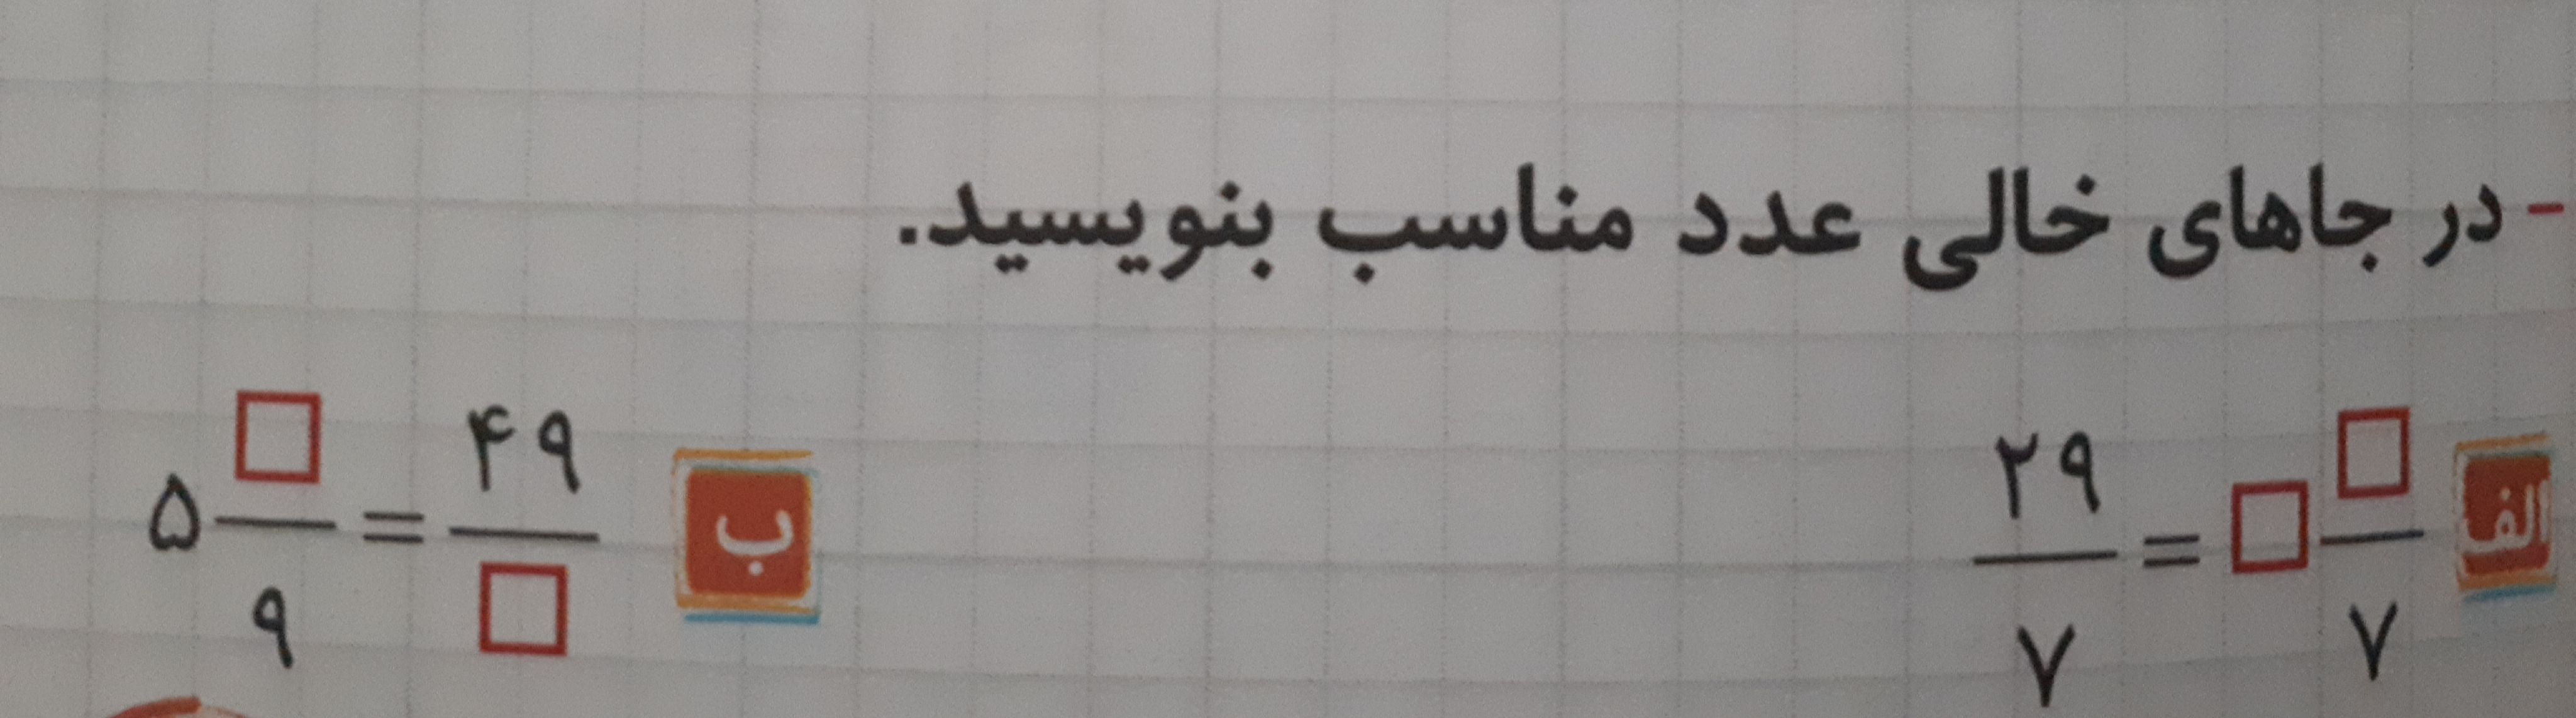 - در جاهای خالی عدد مناسب بنویسید.
الف ۲۹/۷ = □ □/۷
ب ۵ □/۹ = ۴۹/□